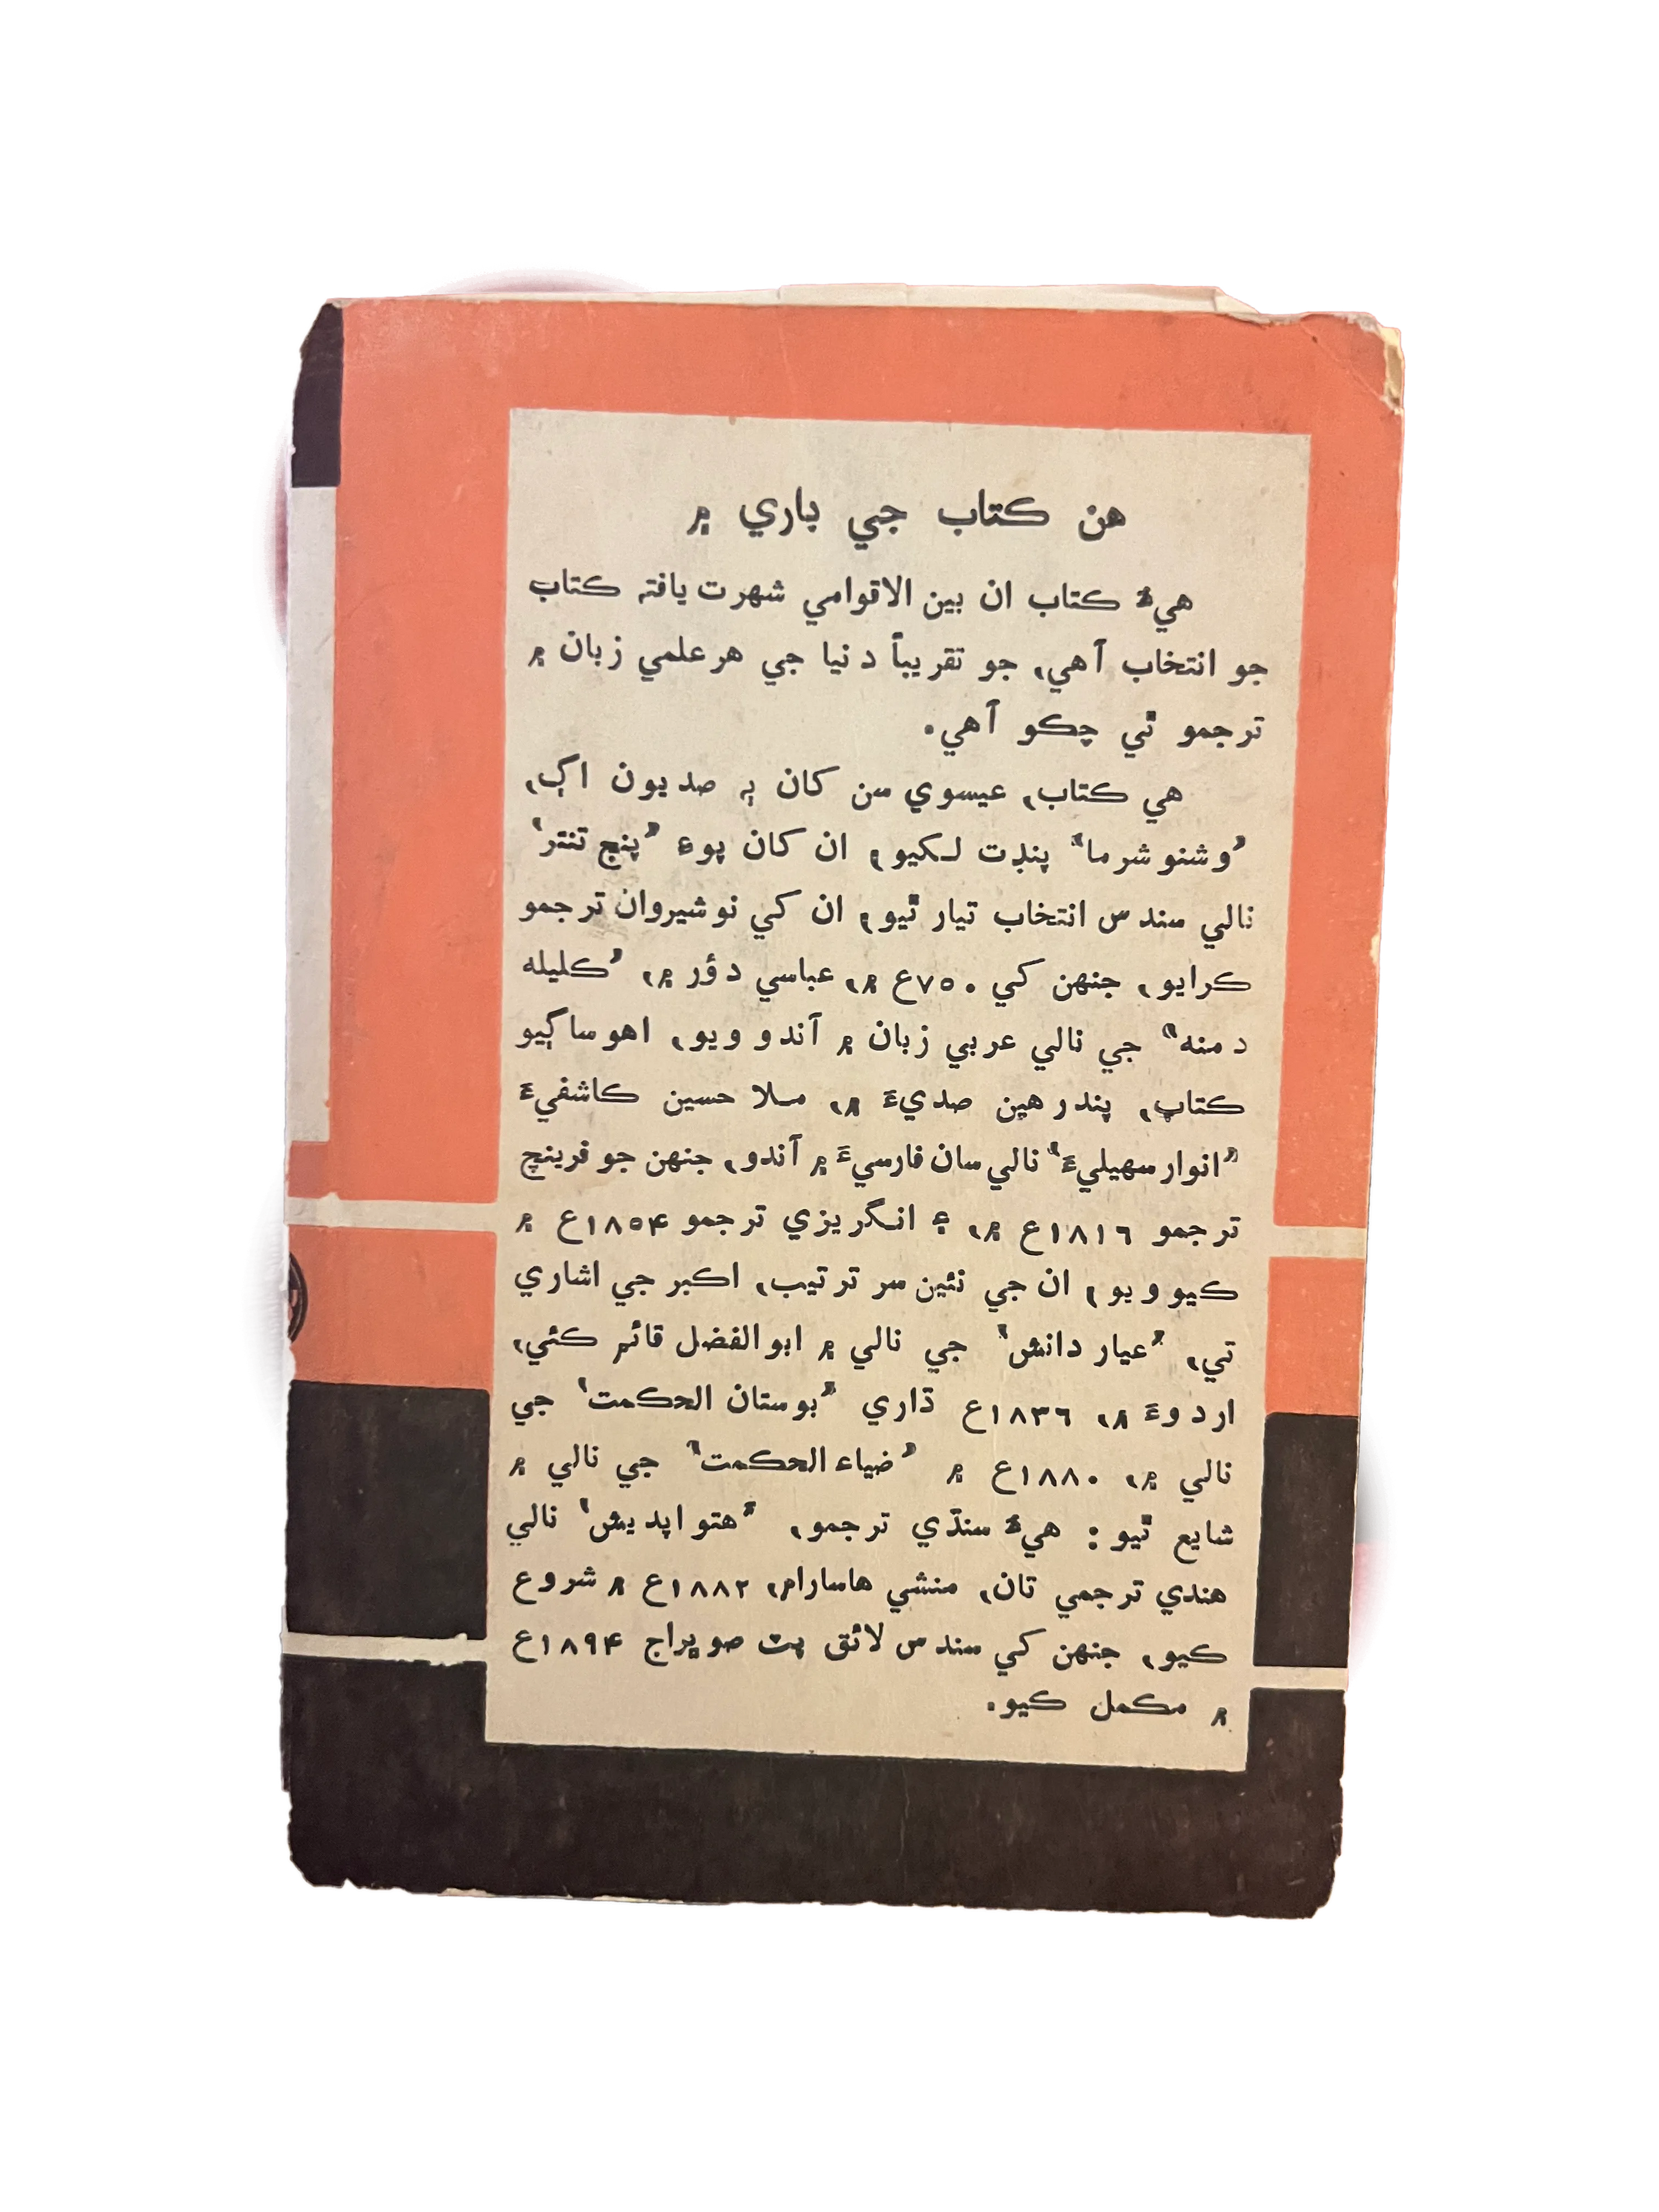 هن ڪتاب جي باري ۾
هيءُ ڪتاب ان بين الاقوامي شهرت يافته ڪتاب
جو انتخاب آهي، جو تقريباً دنيا جي هر علمي زبان ۾
ترجمو ٿي چڪو آهي.
هي ڪتاب، عيسوي سن کان ٻه صديون اڳ،
”وشنو شرما“ پنڊت لکيو؛ ان کان پوءِ ”پنج تنتر“
نالي سندس انتخاب تيار ٿيو؛ ان کي نوشيروان ترجمو
ڪرايو، جنهن کي ٧٥٠ع ۾، عباسي دؤر ۾، ”ڪليله
دمنه“ جي نالي عربي زبان ۾ آندو ويو، اهو ساڳيو
ڪتاب، پندرهين صديءَ ۾، ملا حسين ڪاشفيءَ
”انوار سهيليءَ“ نالي سان فارسيءَ ۾ آندو، جنهن جو فرينچ
ترجمو ١٨١٦ع ۾، ۽ انگريزي ترجمو ١٨٥۴ع ۾
ڪيو ويو؛ ان جي نئين سر ترتيب، اڪبر جي اشاري
تي، ”عيار دانش“ جي نالي ۾ ابوالفضل قائم ڪئي،
اردوءَ ۾، ١٨٣٦ع ڌاري ”بوستان الحڪمت“ جي
نالي ۾، ١٨٨٠ع ۾ ”ضياء الحڪمت“ جي نالي ۾
شايع ٿيو: هيءُ سنڌي ترجمو، ”هتو اپديش“ نالي
هندي ترجمي تان، منشي هاسارام، ١٨٨٢ع ۾ شروع
ڪيو، جنهن کي سندس لائق پٽ صوڀراج ١٨٩۴ع
۾ مڪمل ڪيو.